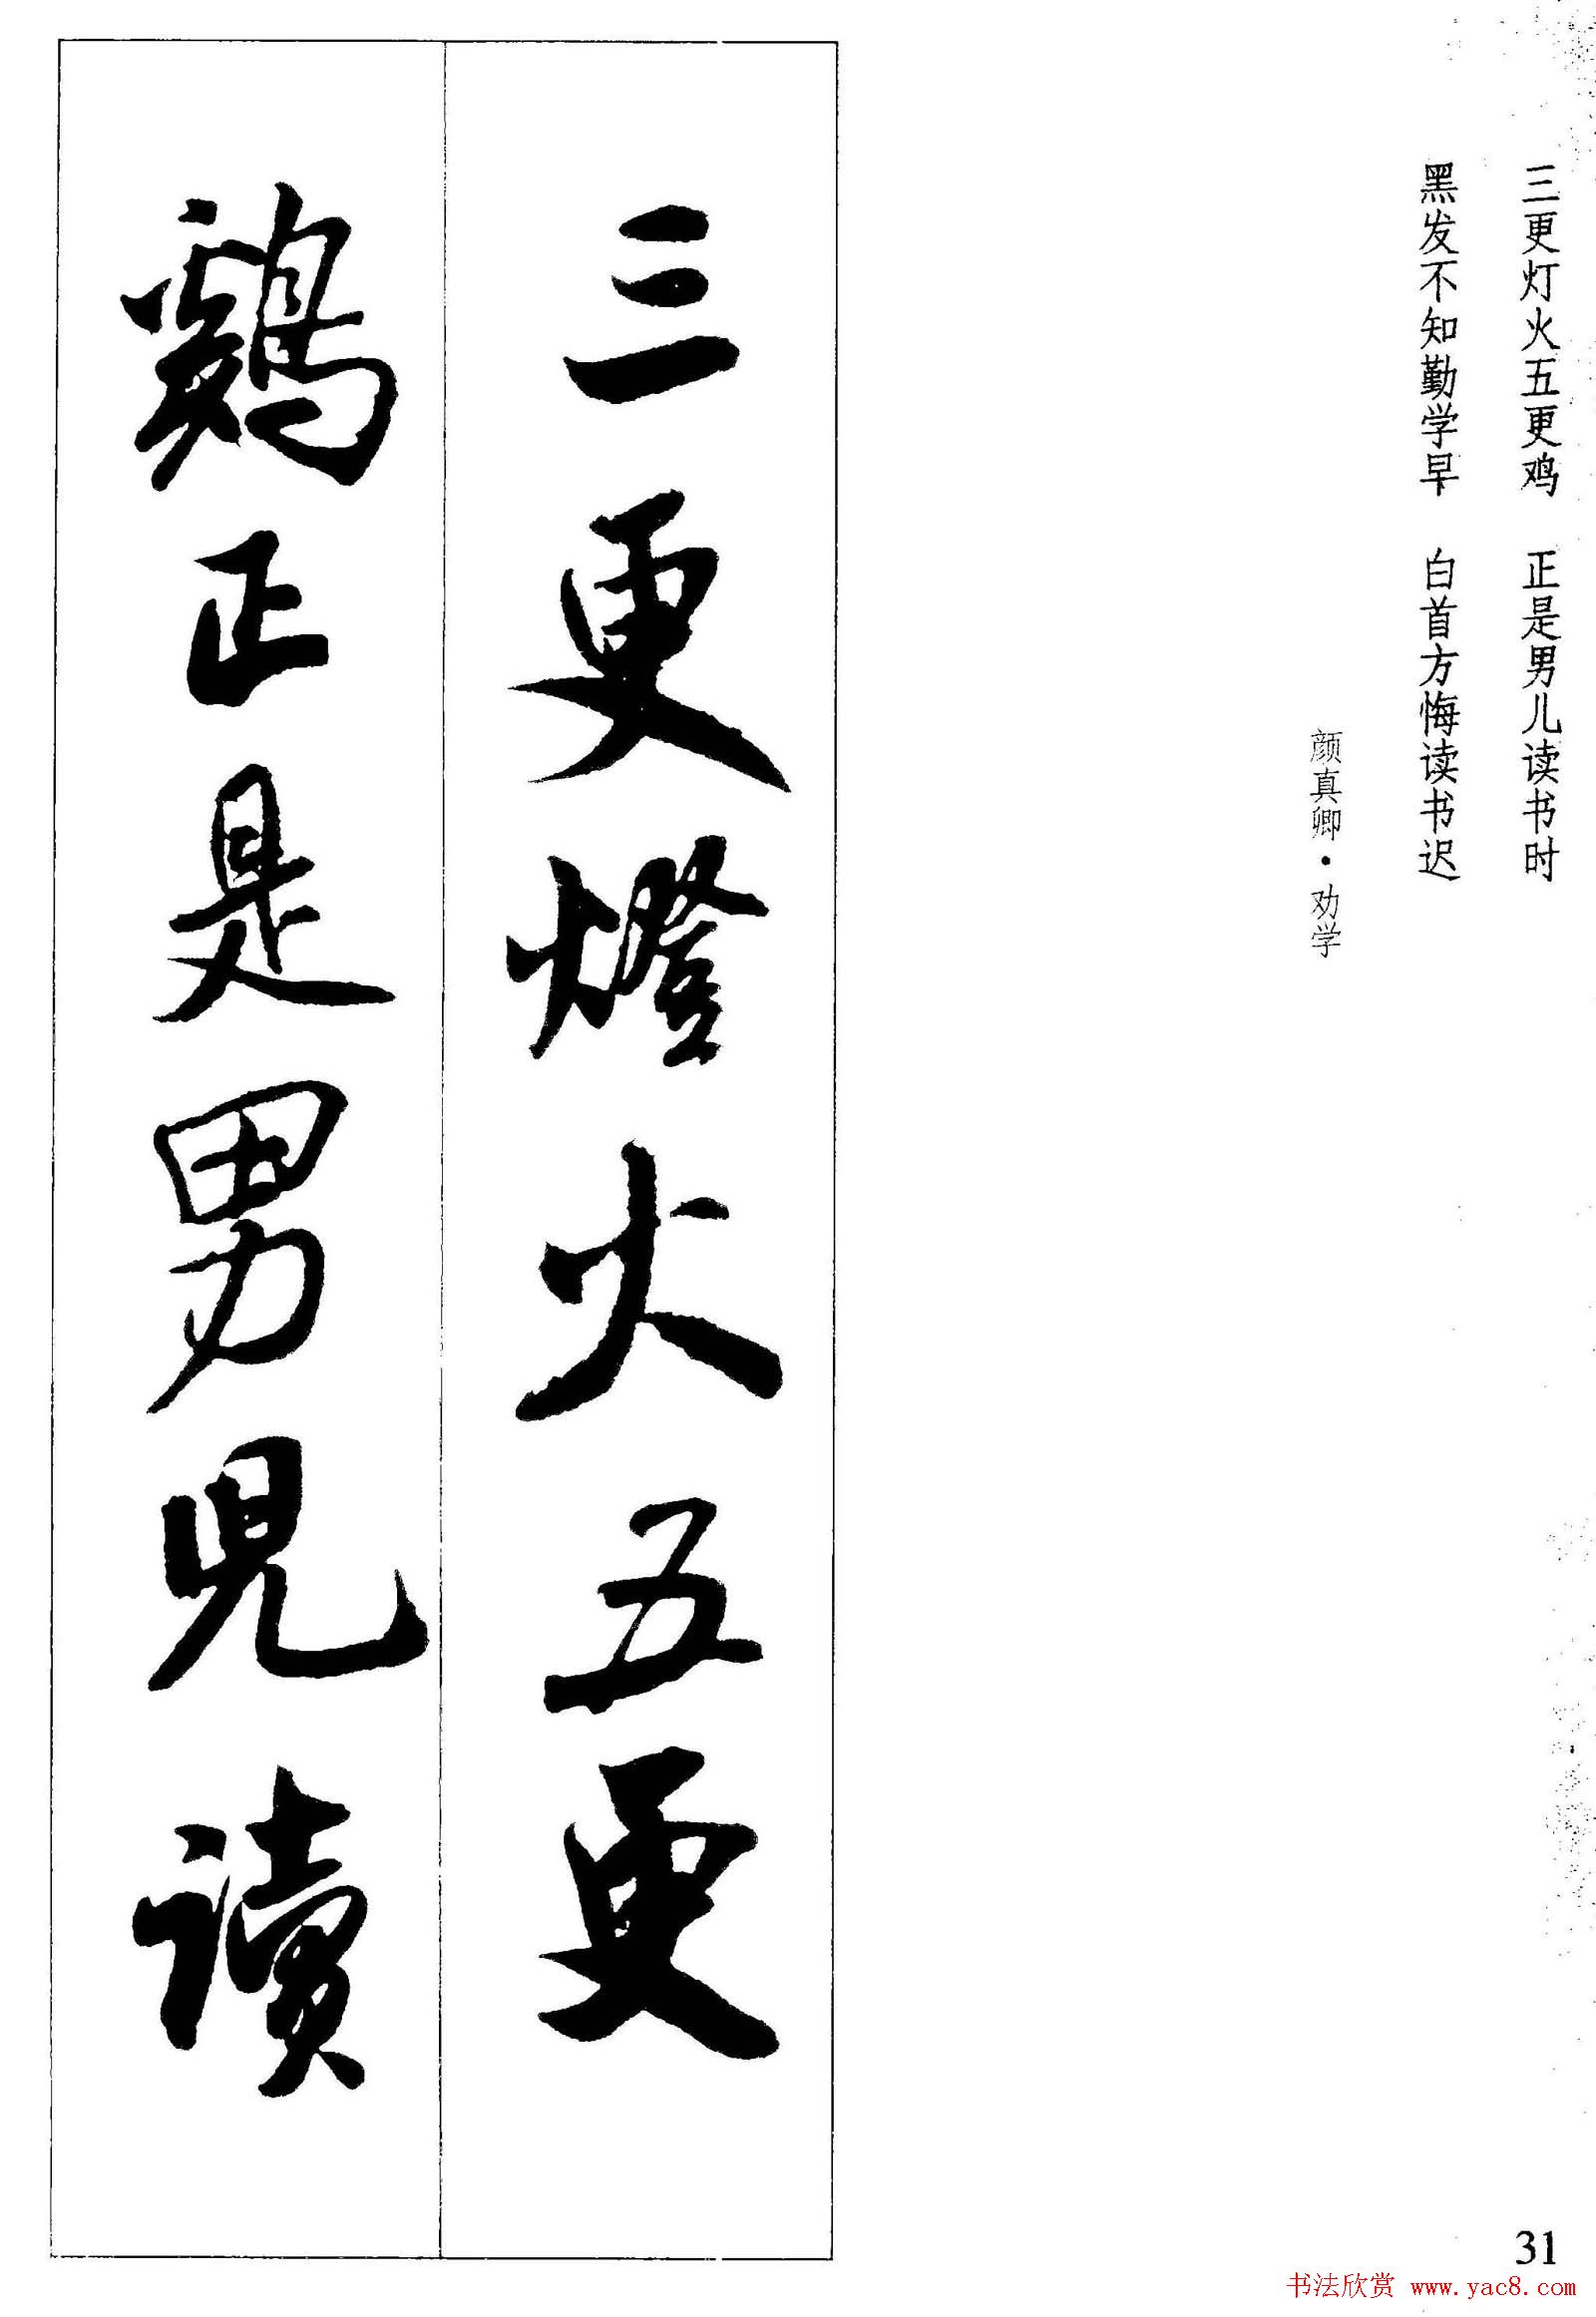 三更灯火五更鸡　正是男儿读书时
黑发不知勤学早　白首方悔读书迟
颜真卿·劝学
三更燈火五更
鷄正是男兒讀
31
书法欣赏 www.yac8.com